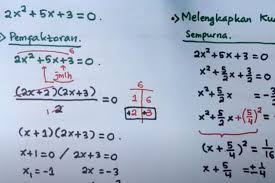 2x² + 5x + 3 = 0.
Pemfaktoran.
6
2x² + 5x + 3 = 0.
jmlh
(2x+2)(2x+3) = 0
2
6
1 6
+2 +3
(x+1)(2x+3) = 0.
x+1 = 0 / 2x+3 = 0
x₁ = -1 2x = -3
Melengkapkan
Sempurna.
2x² + 5x + 3
x² + 5/2x + 3/2 =
x² + 5/2x = -
x² + 5/2x + (5/4)² =
(x + 5/4)² = 1/16
x + 5/4 = ±